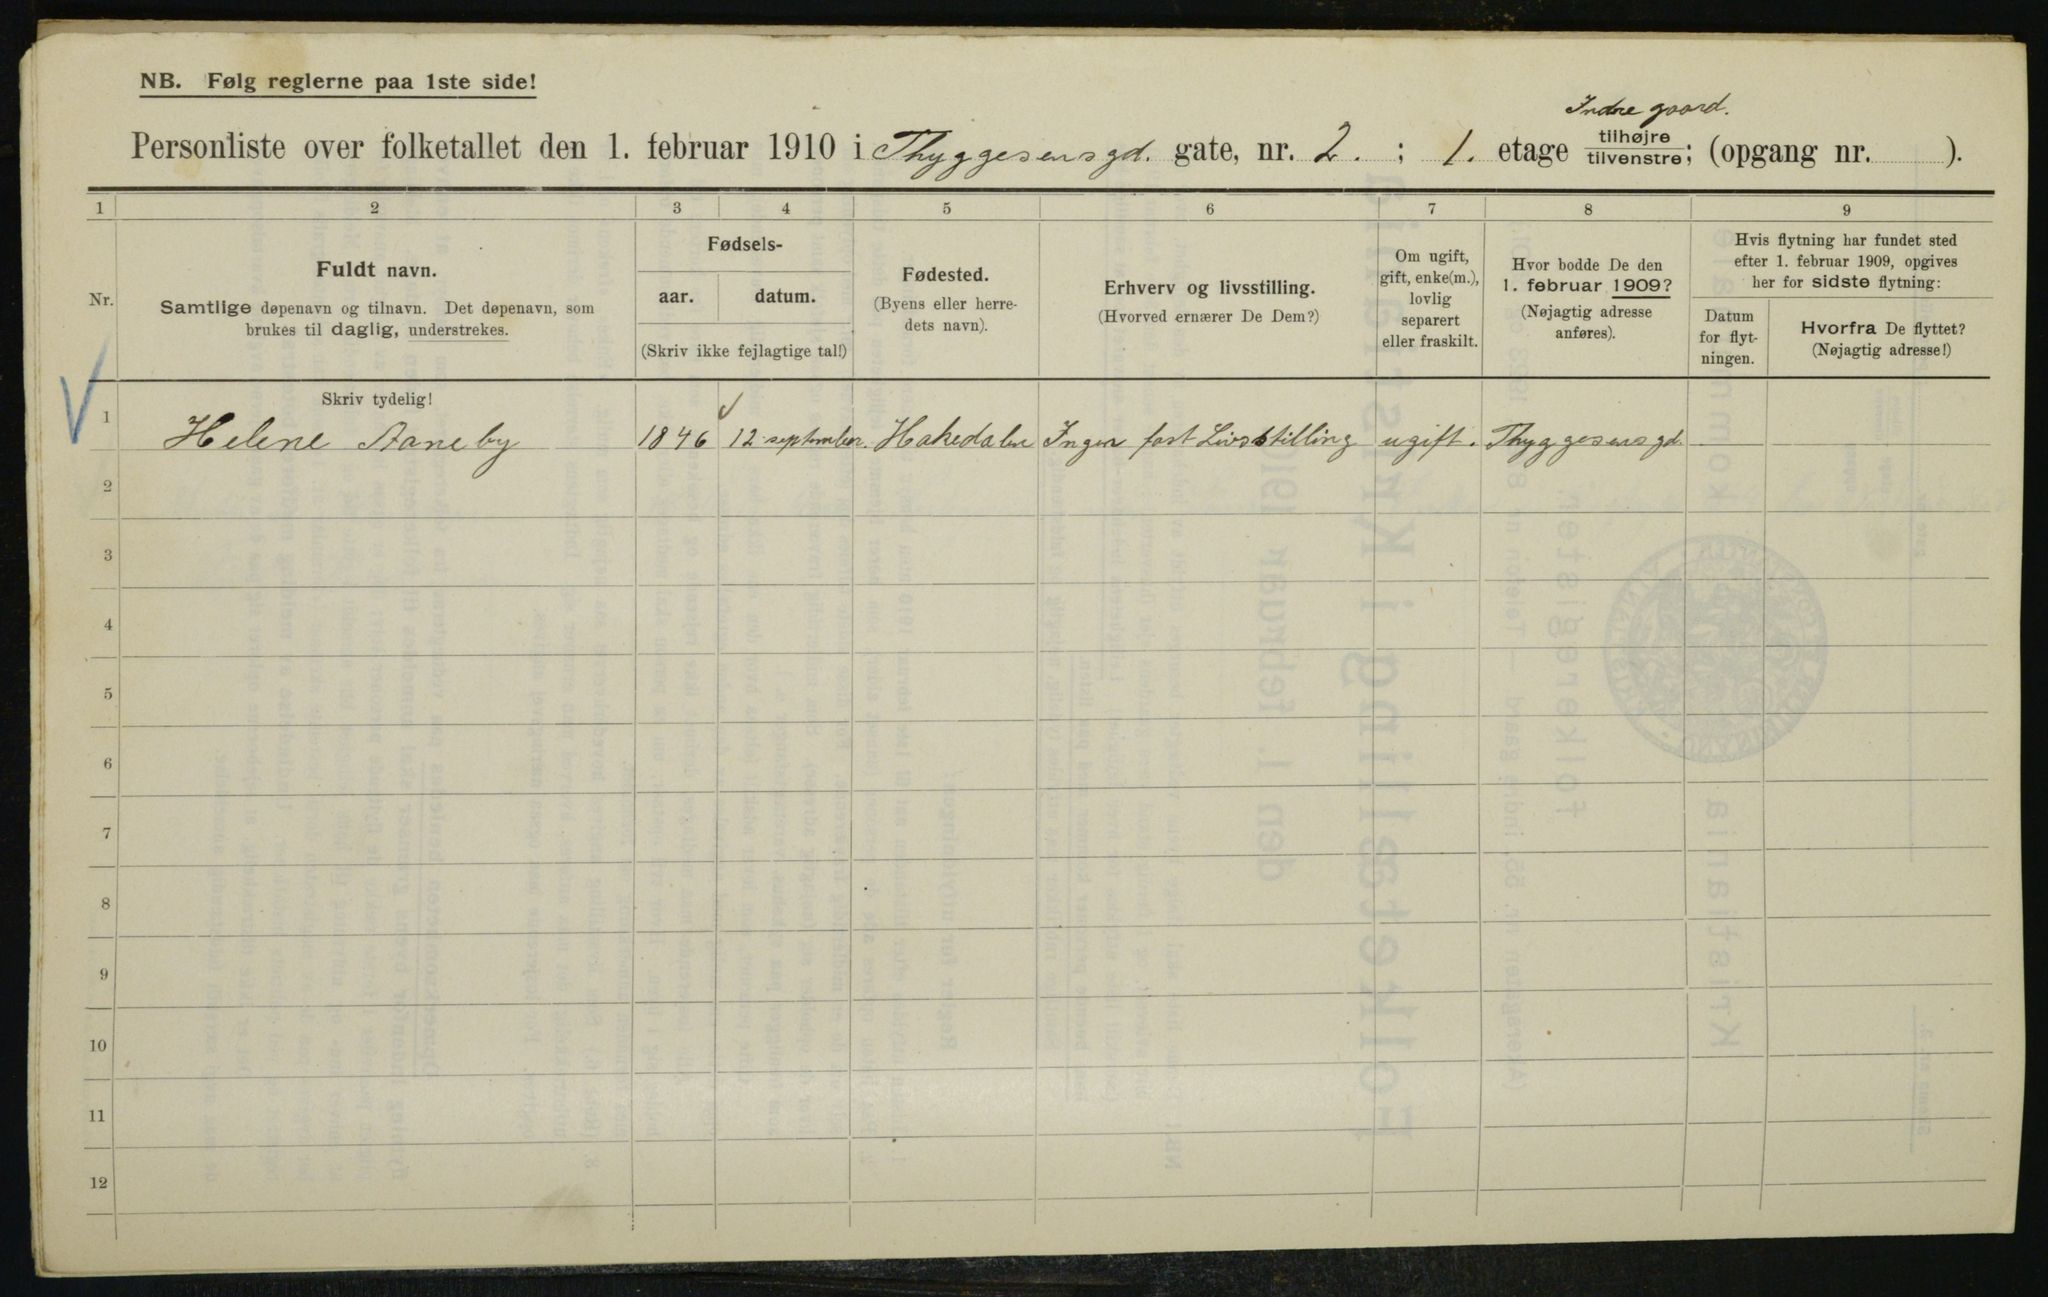 NB. Følg reglerne paa 1ste side!
Indre gaard.
Personliste over folketallet den 1. februar 1910 i Thyggesensgd. gate, nr. 2. ; 1. etage tilhøjre/tilvenstre; (opgang nr. ).
1 2 3 4 5 6 7 8 9
Nr.
Fuldt navn.
Samtlige døpenavn og tilnavn. Det døpenavn, som
brukes til daglig, understrekes.
Fødsels-
aar. datum.
(Skriv ikke fejlagtige tal!)
Fødested.
(Byens eller herre-
dets navn).
Erhverv og livsstilling.
(Hvorved ernærer De Dem?)
Om ugift,
gift, enke(m.),
lovlig
separert
eller fraskilt.
Hvor bodde De den
1. februar 1909?
(Nøjagtig adresse
anføres).
Hvis flytning har fundet sted
efter 1. februar 1909, opgives
her for sidste flytning:
Datum
for flyt-
ningen.
Hvorfra De flyttet?
(Nøjagtig adresse!)
Skriv tydelig!
1 Helene Aaneby 1846 12 september. Hakedalen Ingen fast Livsstilling ugift. Thyggesensgd.
2
3
4
5
6
7
8
9
10
11
12